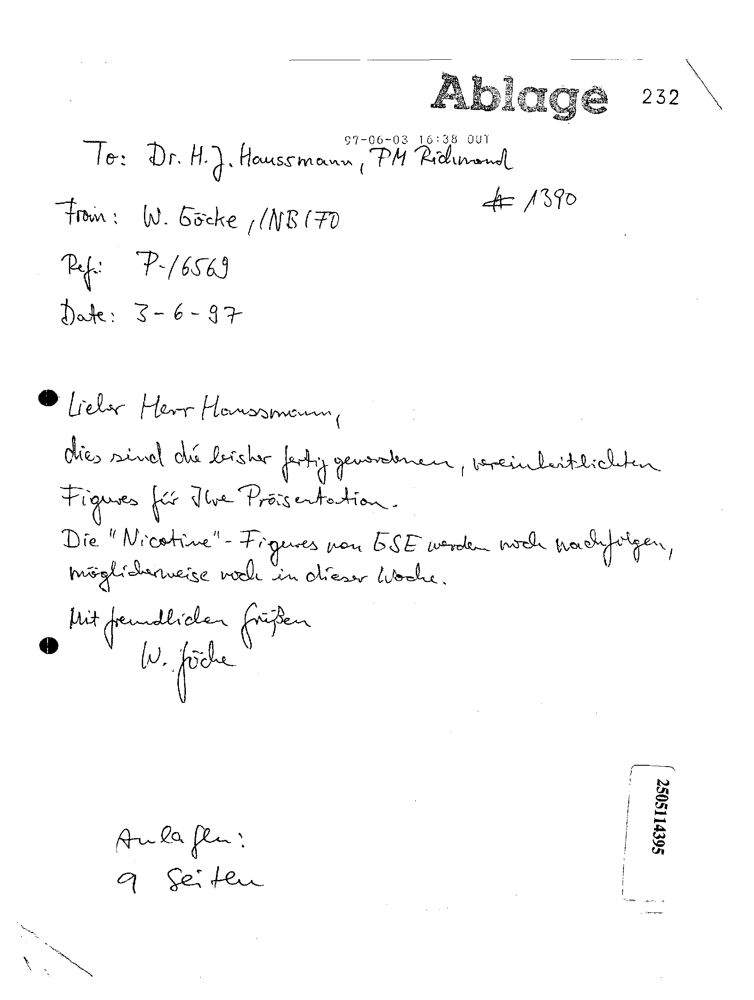 Ablage 232
97-06-03 16:38 OUT
To: Dr. H.J. Haussmann, PM Richmond
# 1390
From: W. Göcke, INBIFO
Ref.: P-16569
Date: 3-6-97
Lieber Herr Haussmann,
dies sind die bisher fertig gewordenen, vereinheitlichten
Figures für Ihre Präsentation.
Die "Nicotine"-Figures von GSE werden noch nachfolgen,
möglicherweise noch in dieser Woche.
Mit freundlichen Grüßen
W. Göcke
Anlagen:
9 Seiten
2505114395